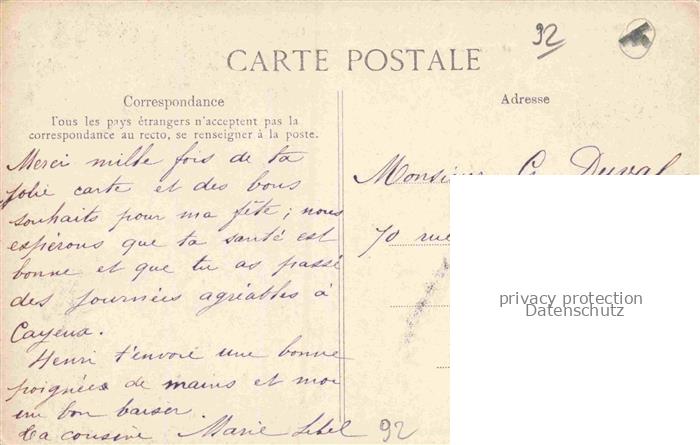 92
CARTE POSTALE
Correspondance
Tous les pays étrangers n'acceptent pas la
correspondance au recto, se renseigner à la poste.
Merci mille fois de ta
jolie carte et des bons
souhaits pour ma fête; nous
espérons que ta santé est
bonne et que tu as passé
des journées agréables à
Cayeux.
Henri t'envoie une bonne
poignée de mains et moi
un bon baiser.
ta cousine Marie Lebel
92
Adresse
Monsieur G. Duval
70 rue
privacy protection
Datenschutz